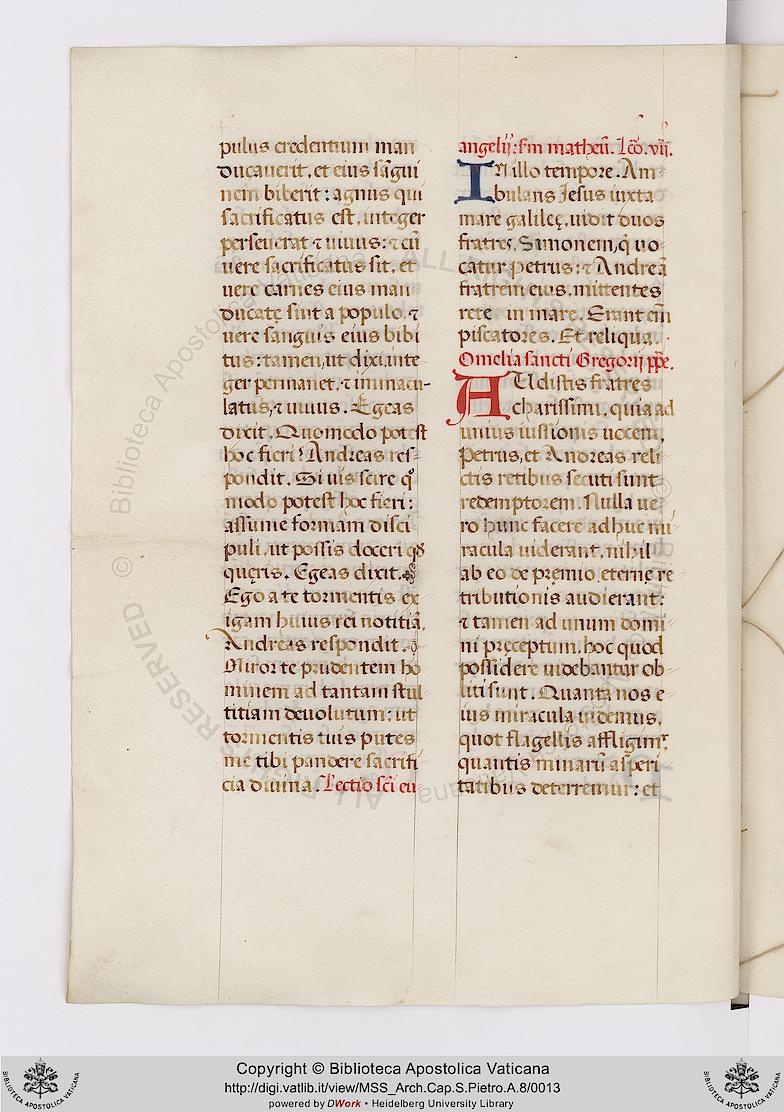 pulus credentium man
ducauerit, et eius sāgui
nem biberit: agnus qui
sacrificatus est, integer
perseuerat ⁊ uiuus: ⁊ cū
uere sacrificatus sit, et
uere carnes eius man
ducatę sint a populo, ⁊
uere sanguis eius bibi
tus: tamen, ut dixi, inte
ger permanet, ⁊ immacu-
latus, ⁊ uiuus. Egeas
dixit. Quomodo potest
hoc fieri? Andreas res-
pondit. Si uis scire qͦ
modo potest hoc fieri:
assume formam disci
puli, ut possis doceri qđ
quęris. Egeas dixit.
Ego a te tormentis ex
igam huius rei notitiā.
Andreas respondit.
Miror te prudentem ho
minem ad tantam stul
titiam deuolutum: ut
tormentis tuis putes
me tibi pandere sacrifi
cia diuina. Lectio sc̄i eu
angelij: ſm matheū. Lcō. vij.
IN illo tempore. Am-
bulans Jesus iuxta
mare galileę, uidit duos
fratres, Simonem, q̄ uo
catur petrus: ⁊ Andreā
fratrem eius, mittentes
rete in mare. Erant em̄
piscatores. Et reliqua.
Omelia sancti Gregorij pp̄e.
AUdistis fratres
charissimi, quia ad
unius iussionis uocem,
Petrus, et Andreas reli
ctis retibus secuti sunt
redemptorem. Nulla ue
ro hunc facere adhuc mi
racula uiderant, nihil
ab eo de pręmio eternę re
tributionis audierant:
⁊ tamen ad unum domi
ni pręceptum, hoc quod
possidere uidebantur ob
liti sunt. Quanta nos e
ius miracula uidemus,
quot flagellis affligimᷣ,
quantis minarū asperi
tatibus deterremur: et
© Biblioteca Apostolica Vaticana
ALL RIGHTS RESERVED
Copyright © Biblioteca Apostolica Vaticana
http://digi.vatlib.it/view/MSS_Arch.Cap.S.Pietro.A.8/0013
powered by DWork • Heidelberg University Library
BIBLIOTECA APOSTOLICA VATICANA
BIBLIOTECA APOSTOLICA VATICANA